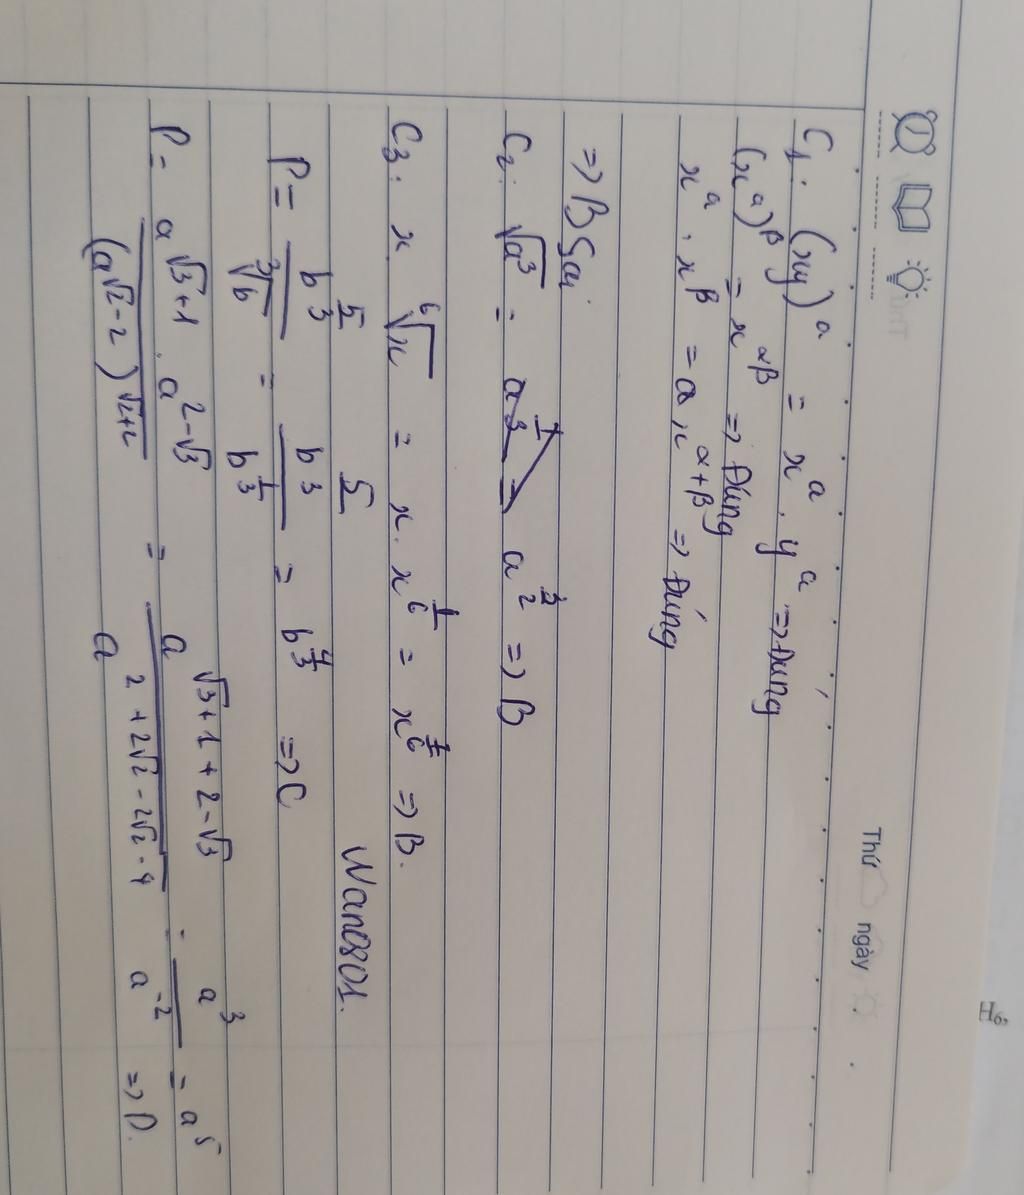 Thứ ngày
C1. (xy)^a = x^a . y^a => Đúng
(x^a)^β = x^αβ => Đúng
x^a . x^β = a x^α+β => Đúng
=> B Sai
C2. √a^3 = a^3/2 => B
C3. x ⁶√x = x . x^1/6 = x^7/6 => B.
Wan0801.
P = b^5/3 / ³√b = b^5/3 / b^1/3 = b^4/3 => C
P = a^√3+1 . a^2-√3 / (a^√2-2)^√2+2 = a^√3+1+2-√3 / a^2+2√2-2√2-4 = a^3 / a^-2 = a^5 => D.
H6,